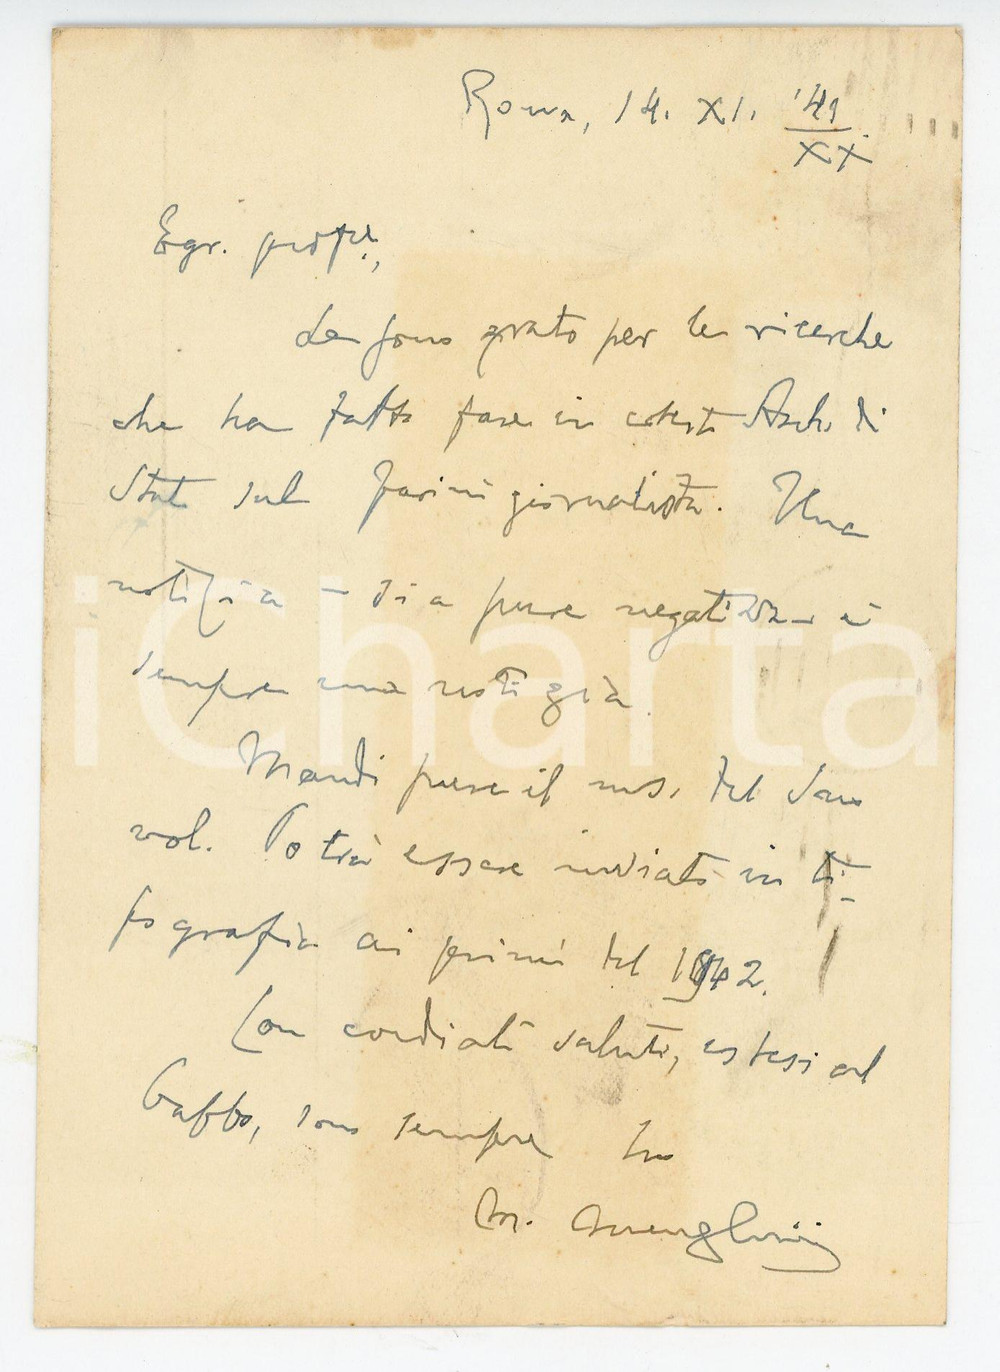 Roma, 14. XI. '41
XX.
Egr. profre.,
Le sono grato per le ricerche
che ha fatto fare in codesto Arch. di
Stato sul Farini giornalista. Una
notizia – sia pure negativa – è
sempre una notizia.
Mandi pure il ms. del Suo
vol. Potrà essere inviato in ti-
pografia ai primi del 1942.
Con cordiali saluti, estesi al
sono sempre Suo
iCharta